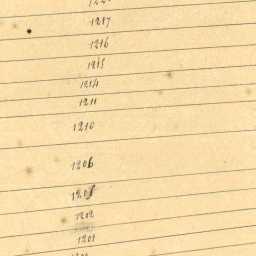 1217
1216
1215
1214
1211
1210
1206
1205
1202
1201